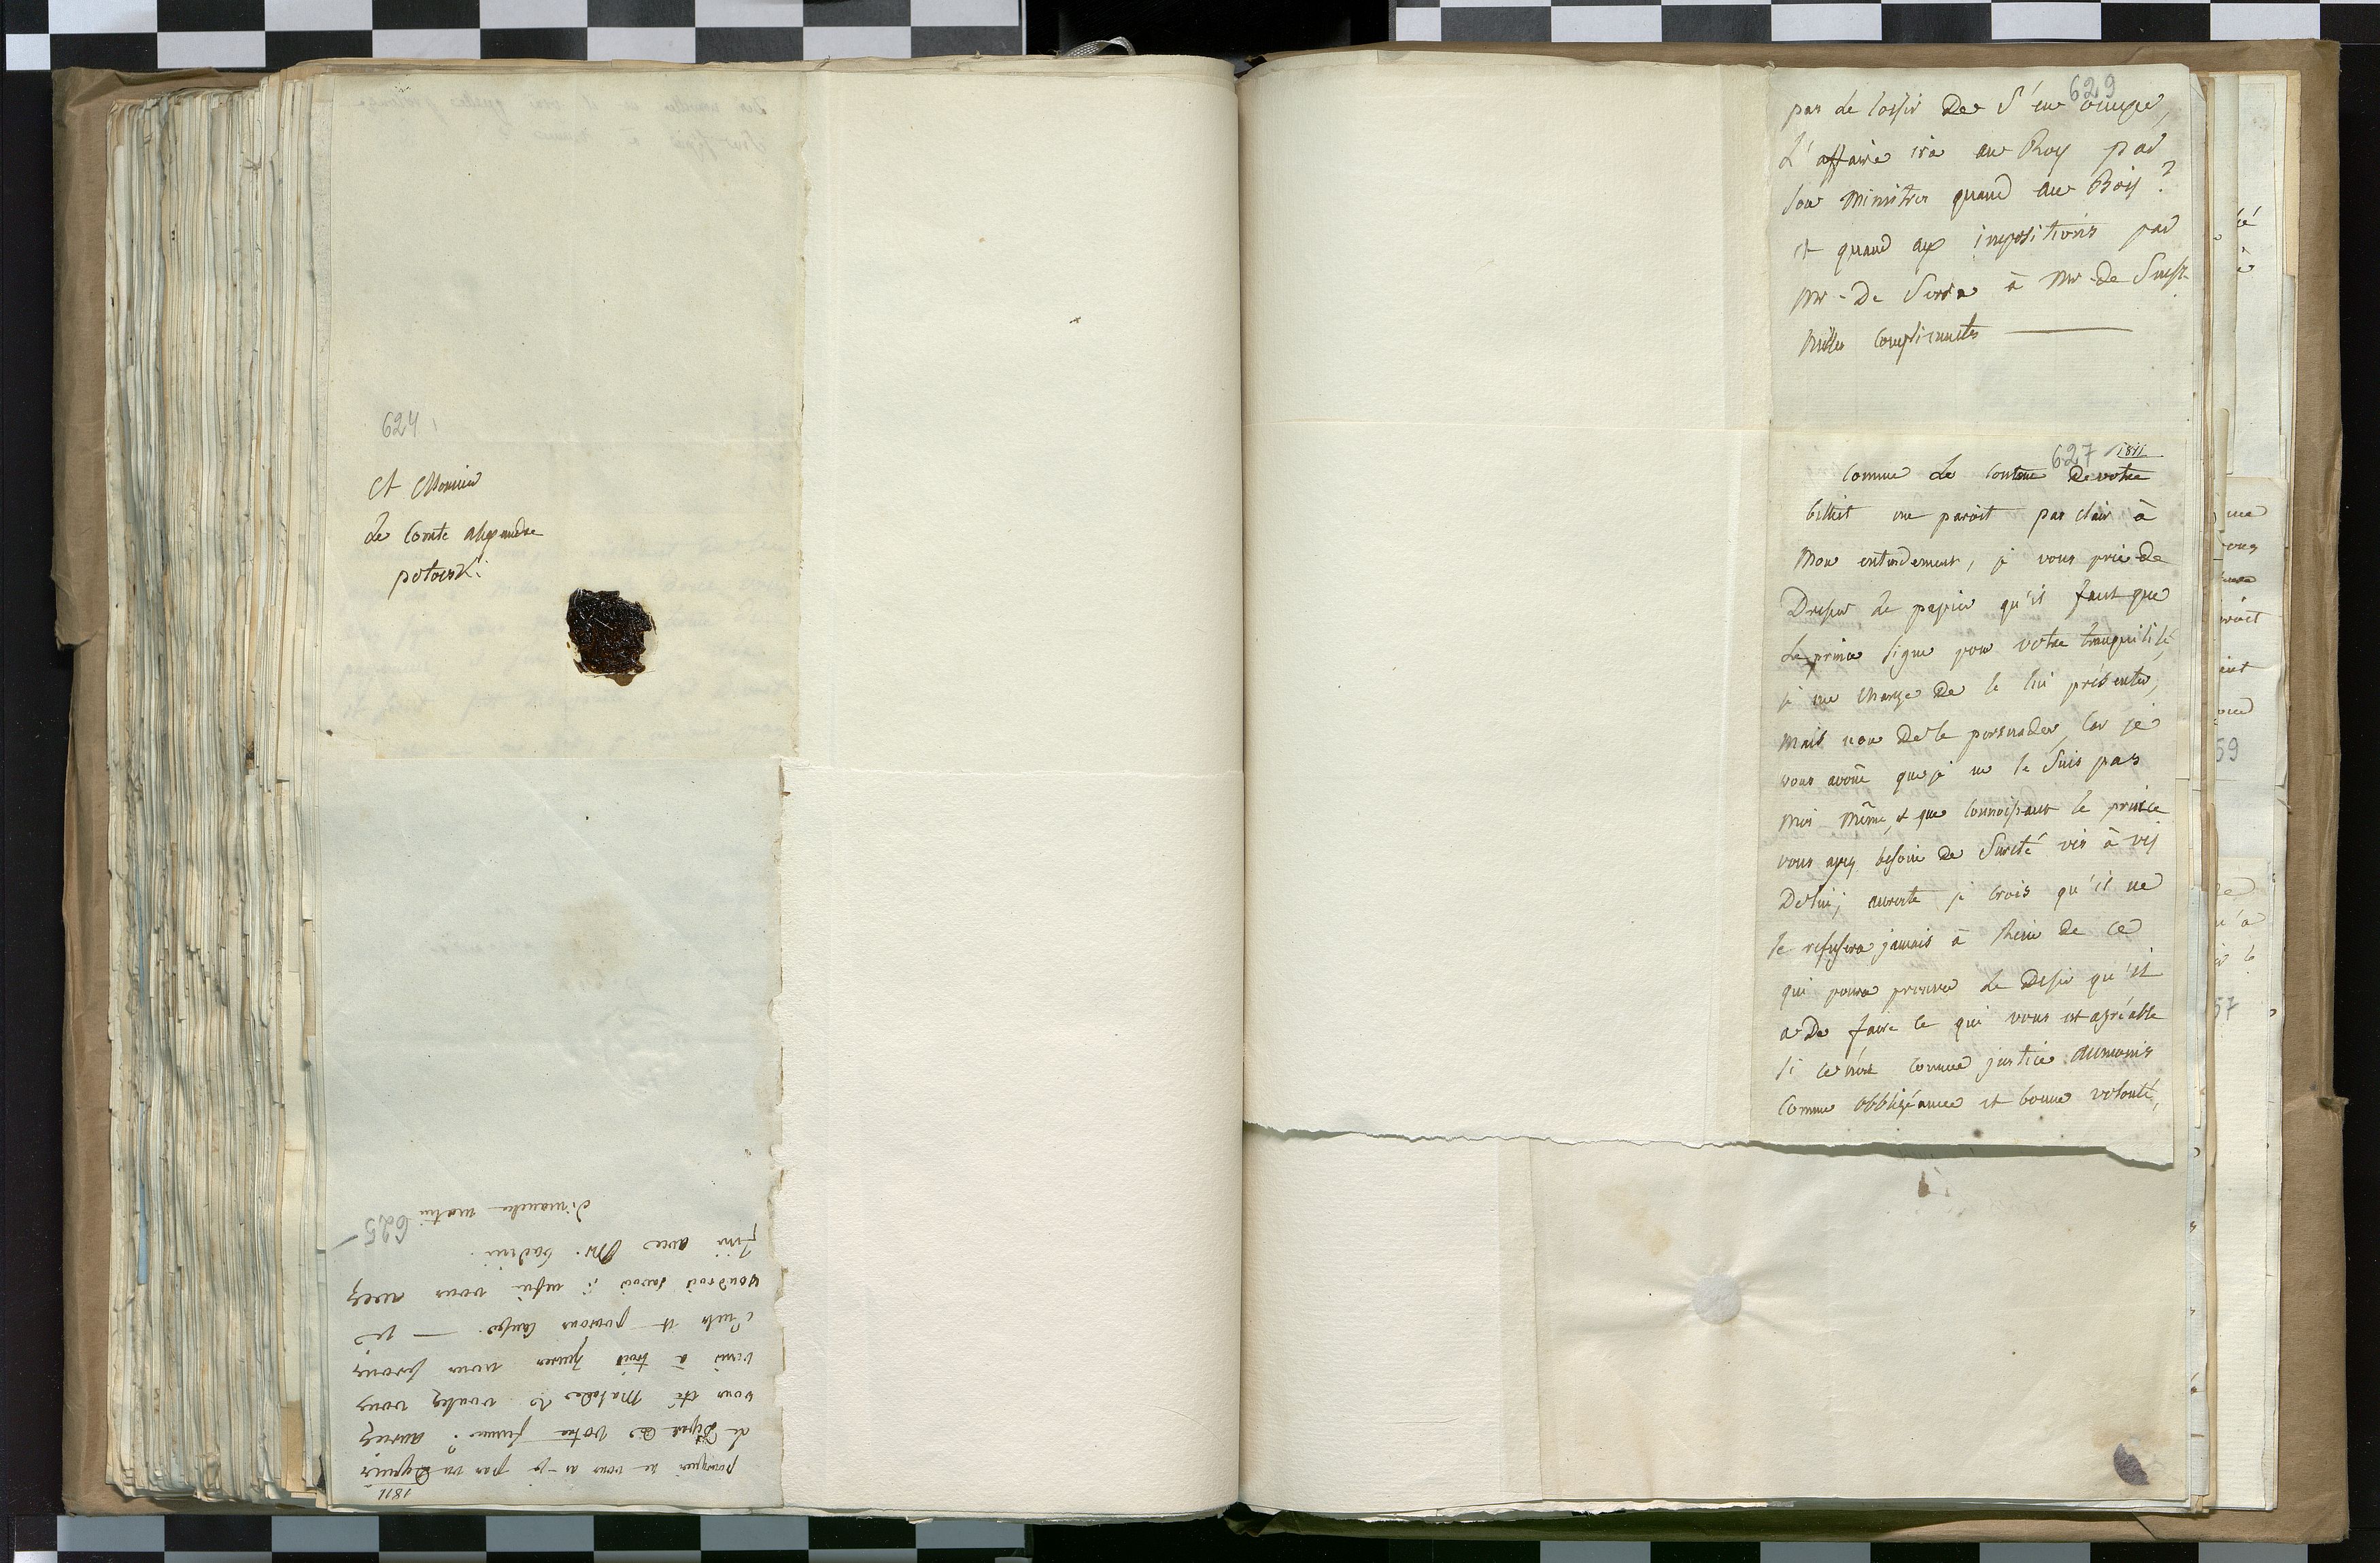 624
A Monsieur
Le Comte alexandre
potocki
1811
pourquoi ne vous ai-je pas vu depuis
le depart de votre femme? auriez
vous été malade? voulez vous
venir à trois heures nous serons
seuls et pourons causer. — je
voudrois savoir si enfin vous avez
fini avec Mr. badeni.
dimanche matin
625
629
pas le loisir de s'en occuper,
L'affaire ira au Roy par
son ministre quand au Roy?
et quand aux impositions par
Mr. De Serra à Mr. De
Milles complimentes
627 1811
Comme le contenu de votre
billet me paroit pas clair à
Mon entendement, je vous prie de
Dresser le papier qu'il faut que
Le prince signe pour votre tranquilité,
je me charge de le lui présenter,
mais non de le persuader, car je
vous avoüe que je ne le suis pas
moi même, et que connoissant le prince
vous ayez besoin de Sureté vis à vis
De lui; aureste je crois qu'il ne
se refusera jamais à Rien de ce
qui poura prouver Le Desir qu'il
a De faire ce qui vous est agréable
si ce n'est comme justice aumoins
Comme obbligeance et bonne volonté,
59
57